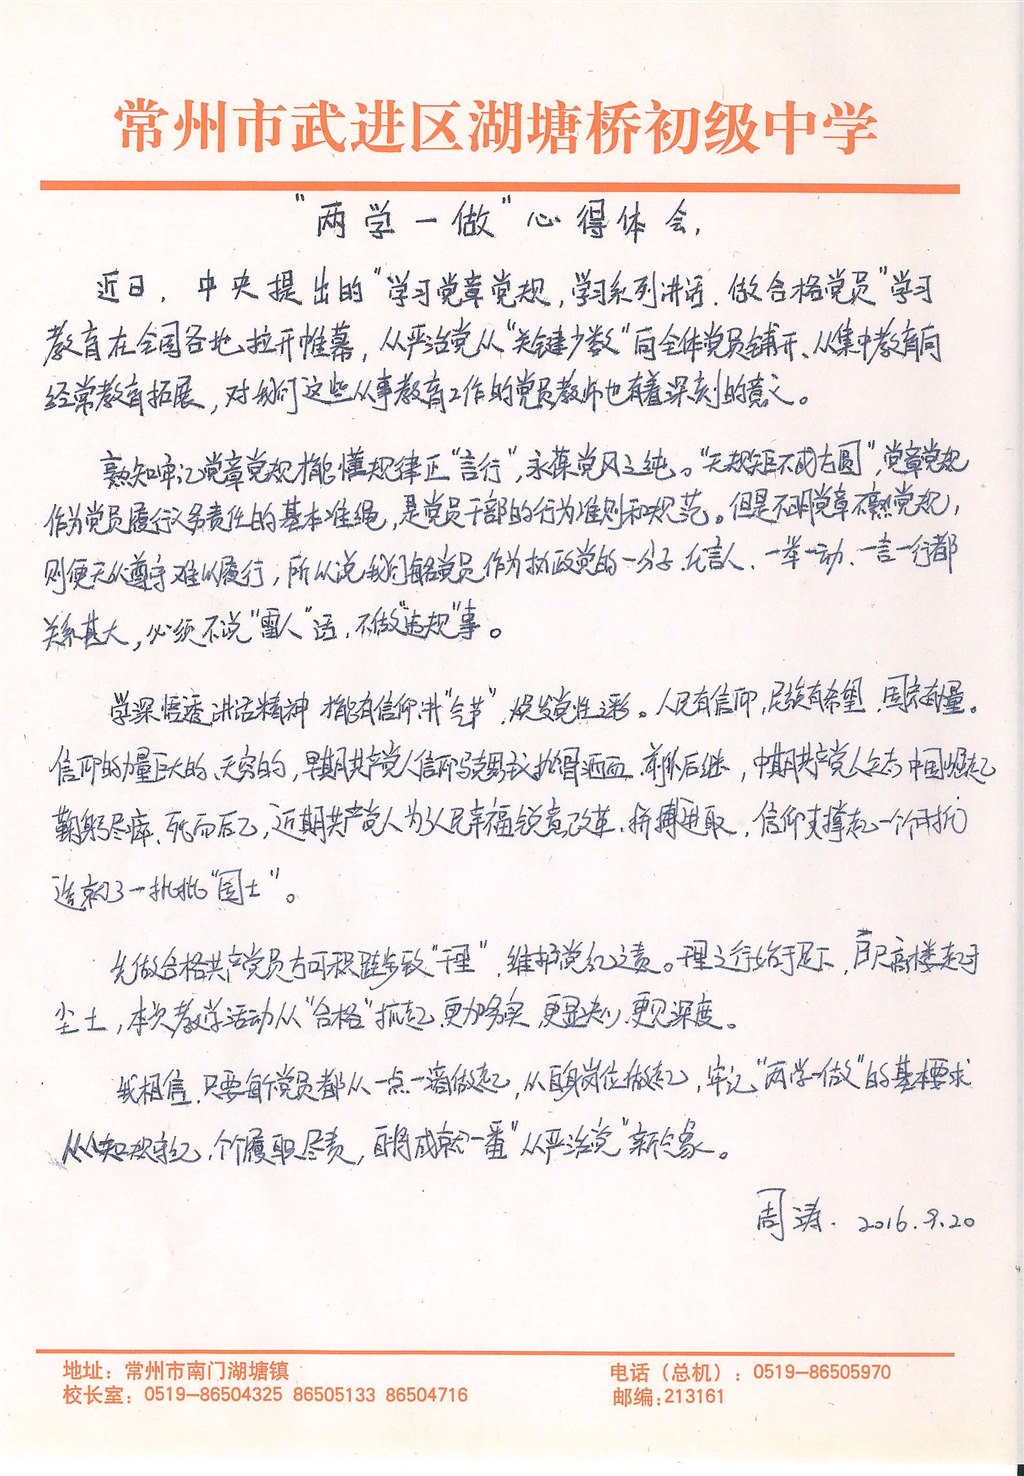 常州市武进区湖塘桥初级中学
"两学一做"心得体会.
近日，中央提出的"学习党章党规，学习系列讲话，做合格党员"学习
教育在全国各地拉开帷幕，从严治党从"关键少数"向全体党员铺开、从集中教育向
经常教育拓展，对我们这些从事教育工作的党员教师也有着深刻的意义。
熟知牢记党章党规才能懂规律正"言行"，永葆党风之纯。"无规矩不成方圆"，党章党规
作为党员履行义务责任的基本准绳，是党员干部的行为准则和规范。但是不明党章不熟党规，
则便无从遵守难以履行，所以说我们每名党员作为执政党的一分子、代言人、一举一动、一言一行都
关系甚大，必须不说"雷人"话，不做"违规"事。
学深悟透讲话精神才能有信仰讲"气节"，焕发党性之彩。人民有信仰，民族有希望，国家有力量。
信仰的力量巨大的、无穷的，早期共产党人信仰马克思主义抛头洒血、前仆后继，中期共产党人矢志中国崛起
鞠躬尽瘁、死而后已，近期共产党人为了人民幸福锐意改革、拼搏进取，信仰支撑起一个个时代
造就了一批批"国士"。
先做合格共产党员方可积跬步致"千里"，维护党纪之责。千里之行始于足下，百尺高楼起于
尘土，本次教学活动从"合格"抓起，更加务实，更显决心，更见深度。
我相信，只要每个党员都从一点一滴做起，从自身岗位做起，牢记"两学一做"的基本要求
人人知规守纪，个个履职尽责，自将成就一番"从严治党"新气象。
周涛. 2016.9.20
地址：常州市南门湖塘镇 电话（总机）：0519—86505970
校长室：0519—86504325 86505133 86504716 邮编:213161